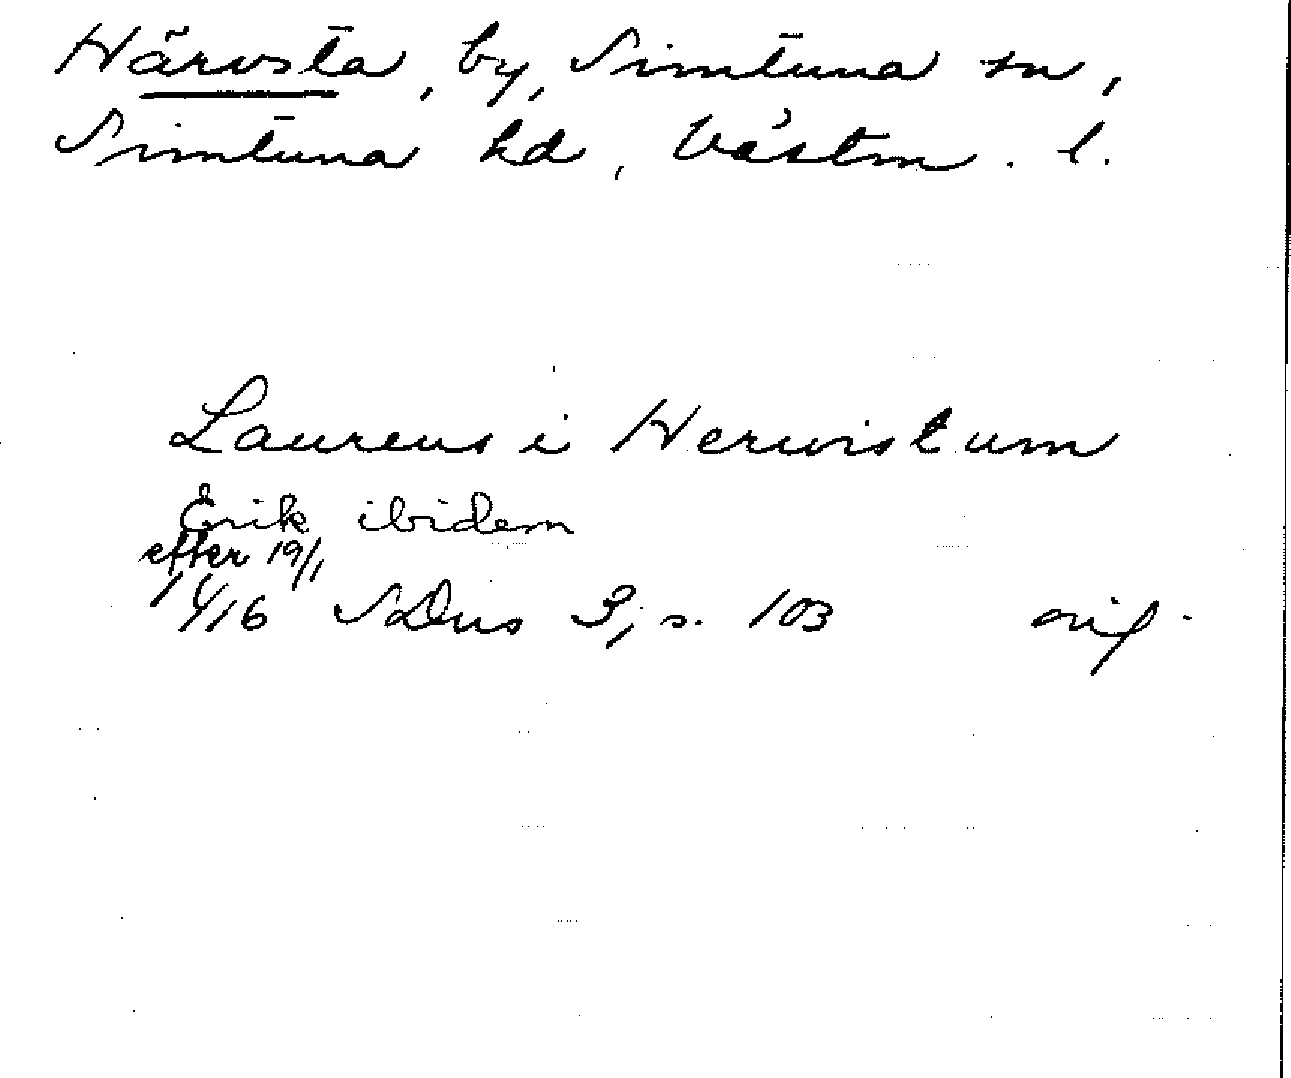 Härvsta, by, Simtuna sn,
Simtuna hd, Västm. l.
Laurens i Herwistum
Erik ibidem
efter 19/1
1416 SDns 3, s. 103 orig.